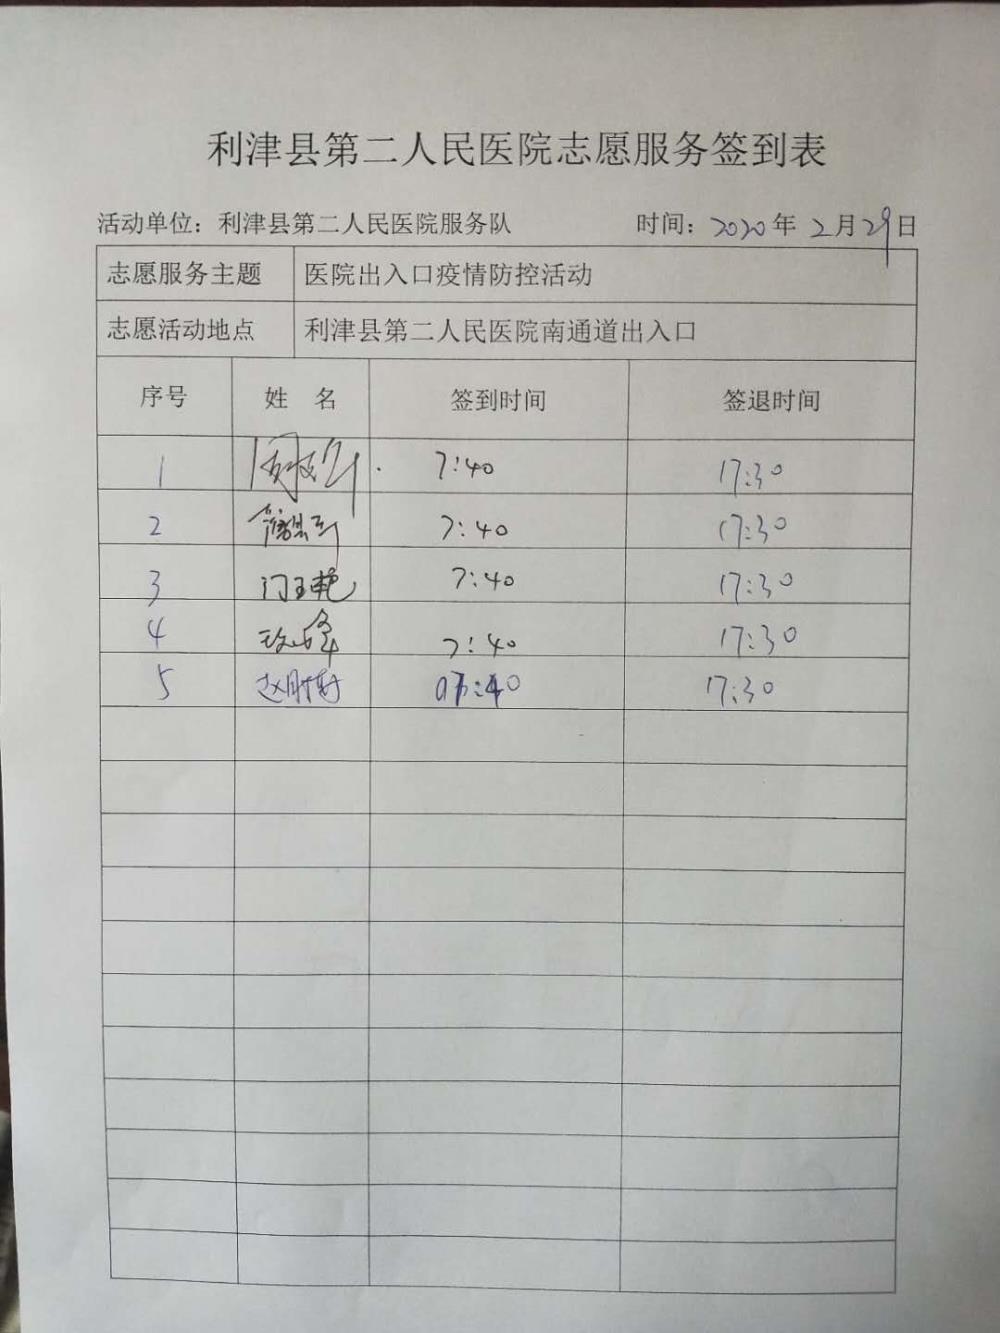 利津县第二人民医院志愿服务签到表
活动单位：利津县第二人民医院服务队 时间：2020年 2月29日
志愿服务主题 医院出入口疫情防控活动
志愿活动地点 利津县第二人民医院南通道出入口
序号 姓 名 签到时间 签退时间
1 7:40 17:30
2 7:40 17:30
3 7:40 17:30
4 7:40 17:30
5 07:40 17:30